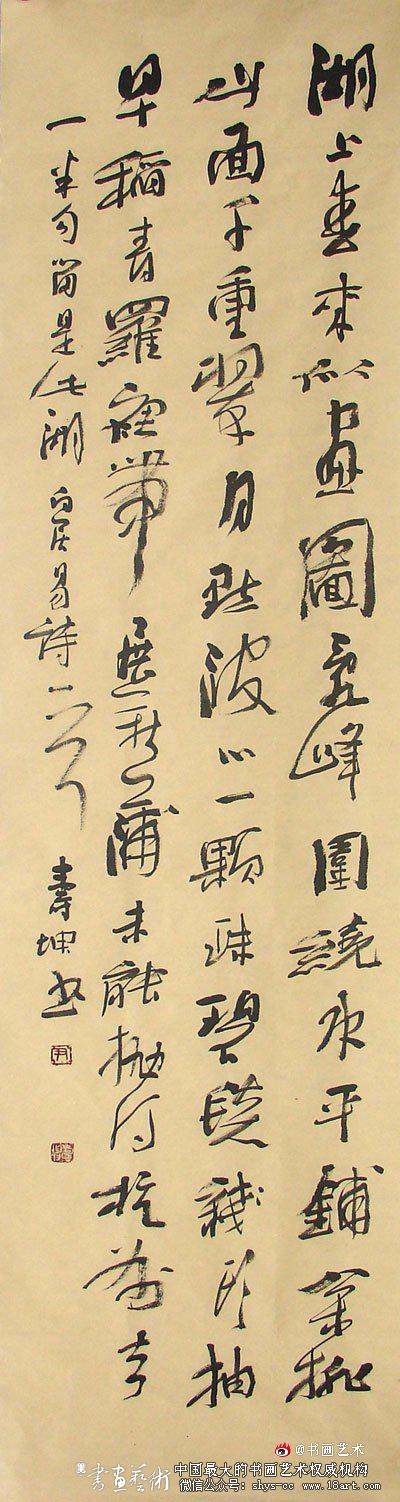 湖上春来似畫圖亂峰圍繞水平鋪松排
山面千重翠月點波心一顆珠碧毯綫头抽
早稻青羅裙帶展新蒲未能抛得杭州去
一半勾留是此湖 白居易詩一首 壽坤书
尹
@书画艺术
書畫藝術
中国最大的书画艺术权威机构
微信公众号: shys-cc www.18art.com